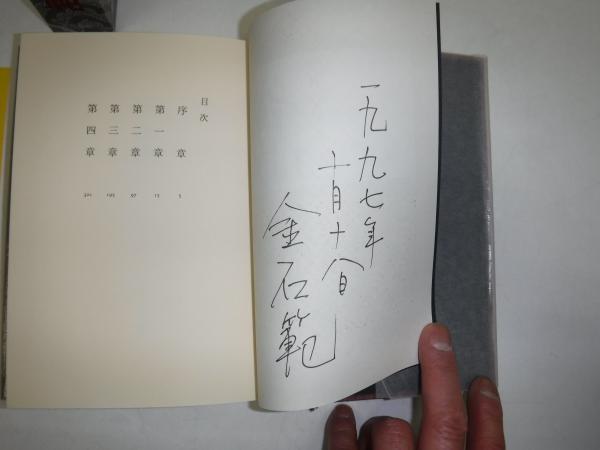 一九九七年
十月十八日
金石範
目次
序章 5
第一章
第二章 97
第三章
第四章